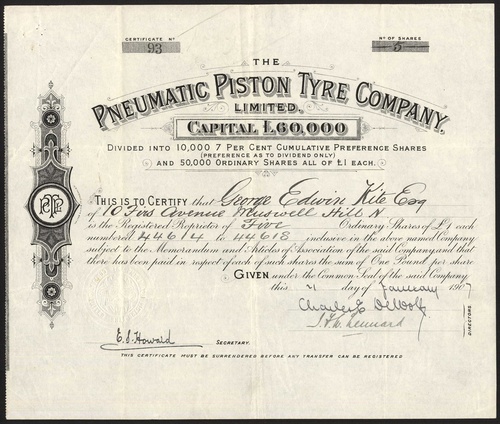 CERTIFICATE Nº
93
Nº OF SHARES
5
THE
PNEUMATIC PISTON TYRE COMPANY,
LIMITED.
CAPITAL £60,000
DIVIDED INTO 10,000 7 PER CENT CUMULATIVE PREFERENCE SHARES
(PREFERENCE AS TO DIVIDEND ONLY)
AND 50,000 ORDINARY SHARES ALL OF £1 EACH.
THIS IS TO CERTIFY that George Edwin Kite Esq
of 10 Firs Avenue Muswell Hill N
is the Registered Proprietor of Five Ordinary Shares of £1 each
numbered 44614 to 44618 inclusive in the above named Company
subject to the Memorandum and Articles of Association of the said Company and that
there has been paid in respect of each of such shares the sum of One Pound per share
GIVEN under the Common Seal of the said Company
this 21 day of January 1907
Charles E DeWolf
DIRECTORS.
E. S. Howard
SECRETARY.
THIS CERTIFICATE MUST BE SURRENDERED BEFORE ANY TRANSFER CAN BE REGISTERED